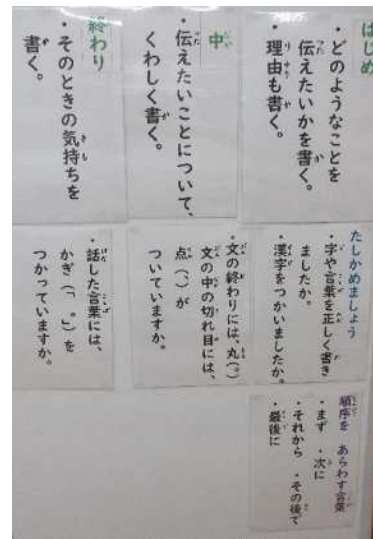 はじめ
・どのようなことを
伝えたいかを書く。
・理由も書く。
中
・伝えたいことについて、
くわしく書く。
終わり
・そのときの気持ちを
書く。
たしかめましょう
・字や言葉を正しく書き
ましたか。
・漢字をつかいましたか。
・文の終わりには、丸(。)
文の中の切れ目には、
点(、)が
ついていますか。
・話した言葉には、
かぎ(「 。」)を
つかっていますか。
順序を あらわす言葉
・まず ・次に
・それから ・その後で
・最後に